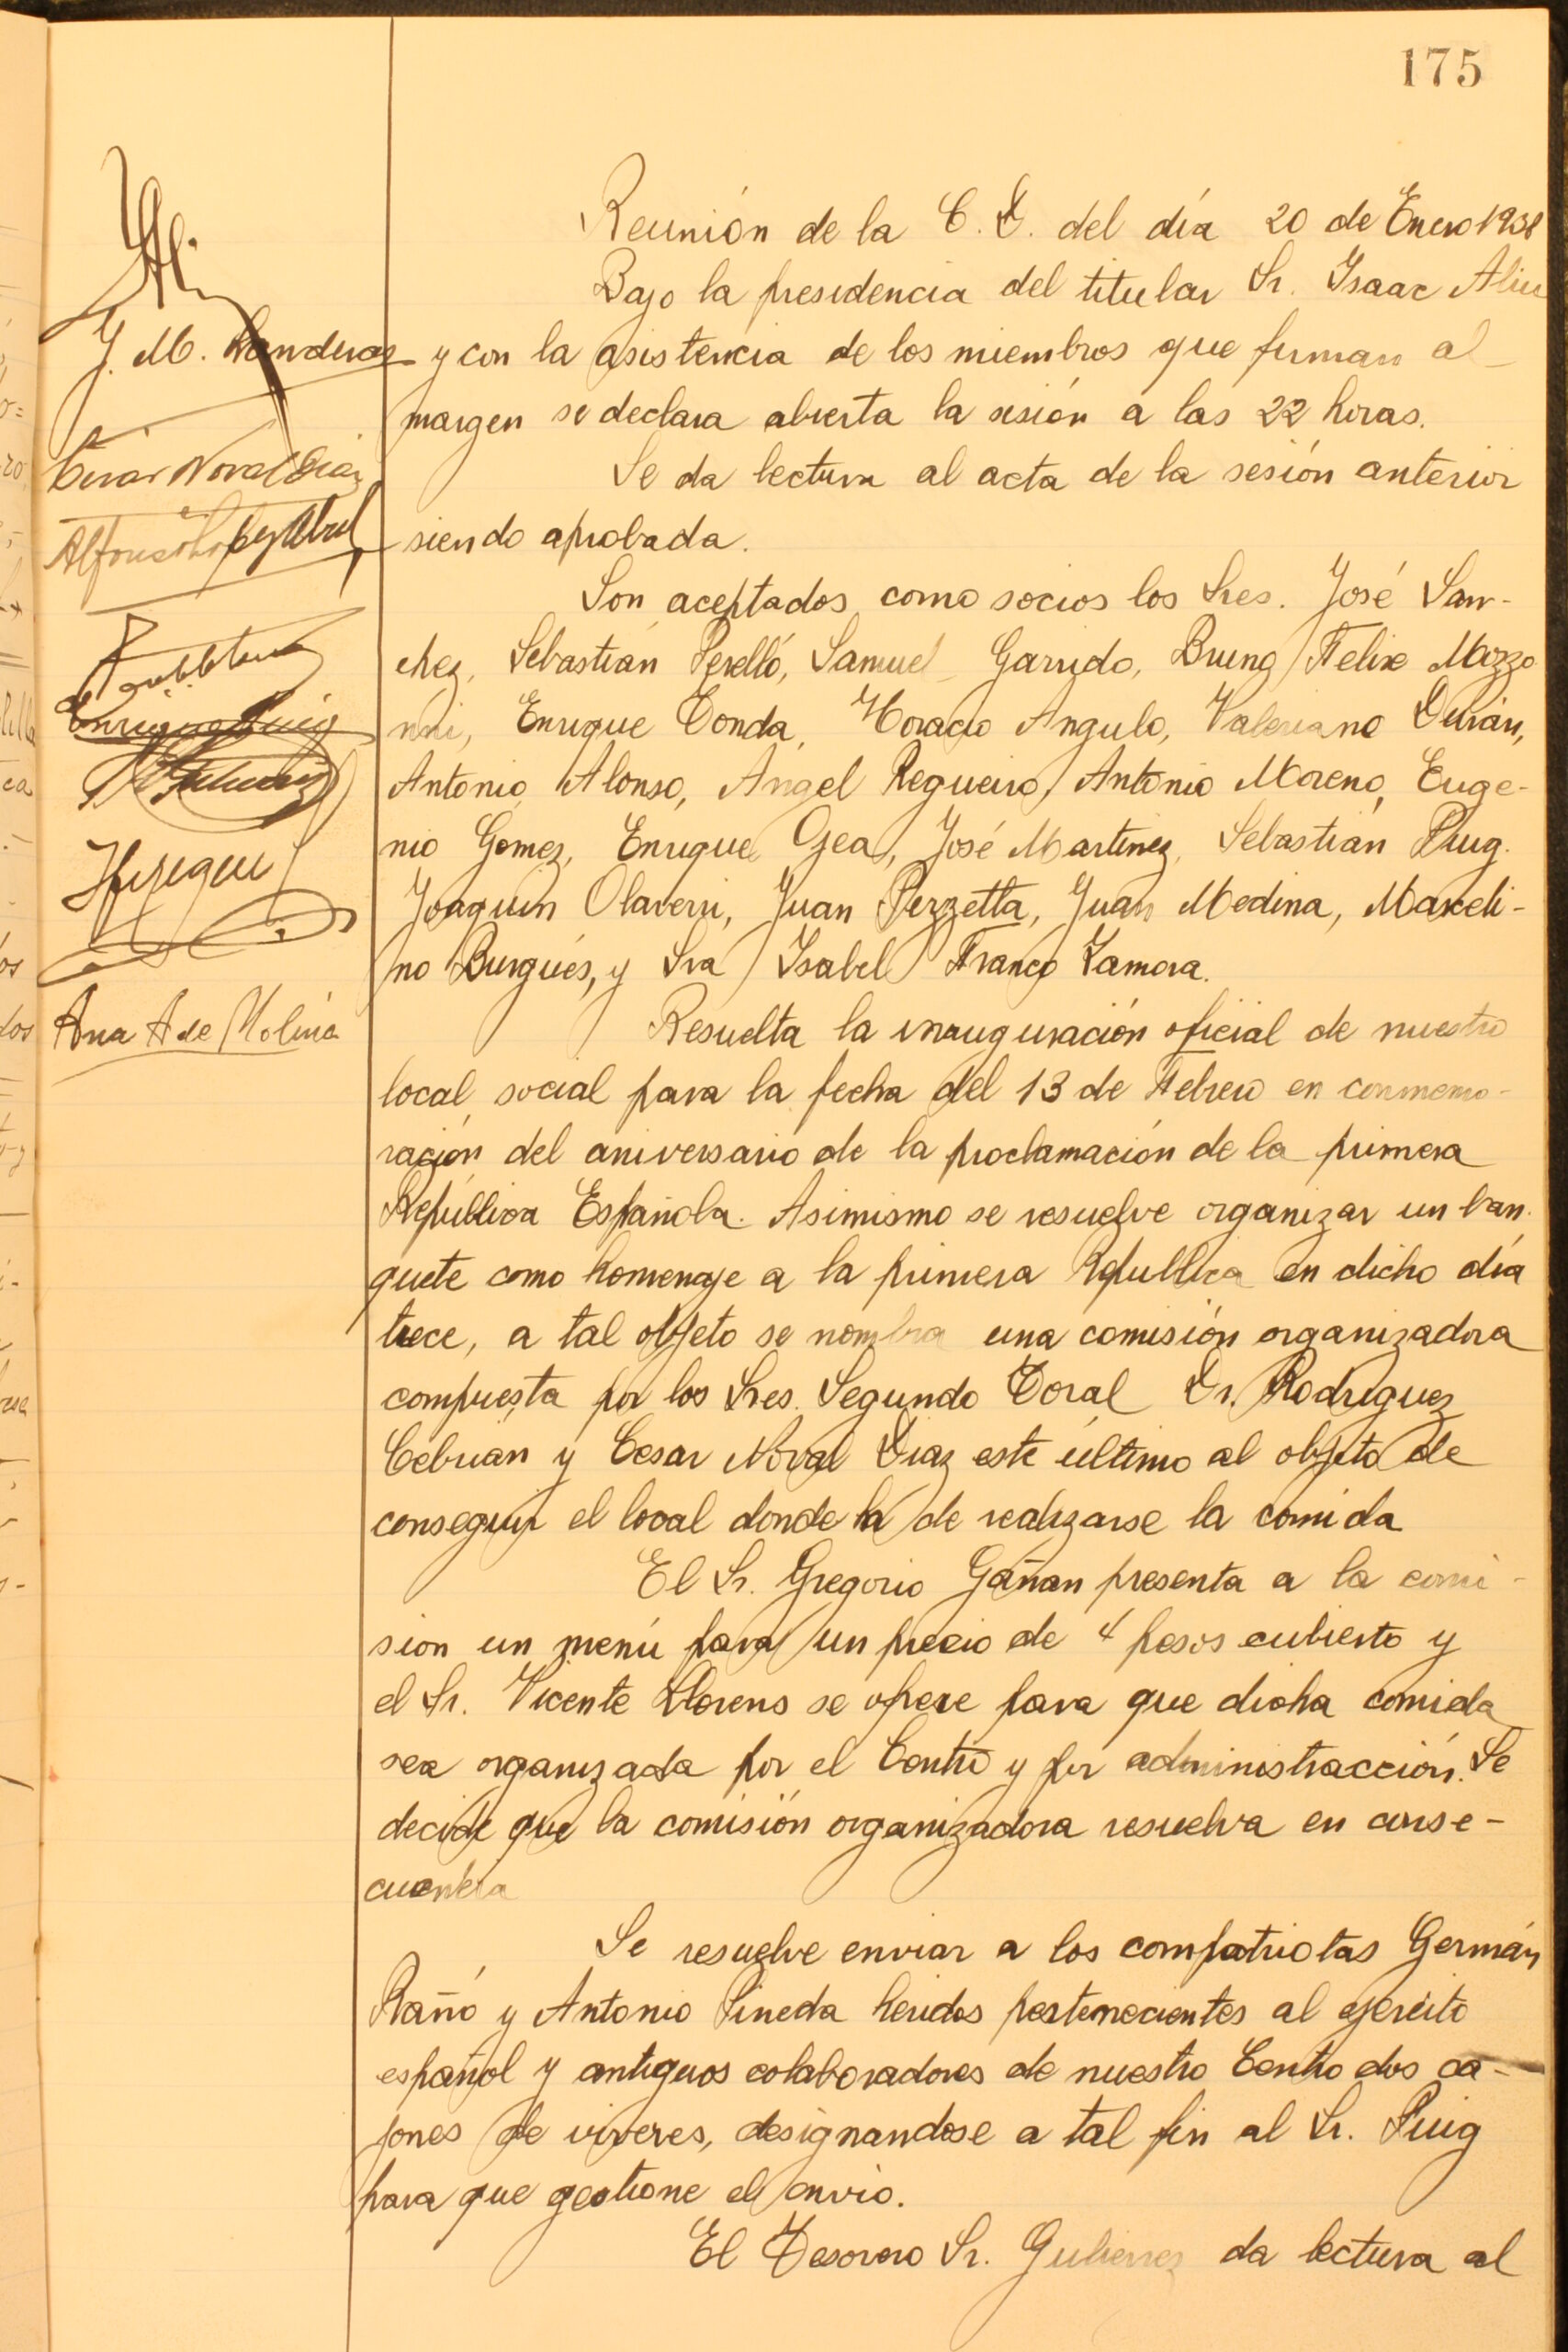 175
Reunión de la C. D. del día 20 de Enero 1938
Bajo la presidencia del titular Sr. Isaac
y con la asistencia de los miembros que firman al
margen se declara abierta la sesión a las 22 horas.
Se da lectura al acta de la sesión anterior
siendo aprobada.
Son aceptados como socios los Sres. José San-
chez, Sebastián Perelló, Samuel Garrido, Felix Mozzo
nni, Enrique Conda, Horacio Angulo, Valeriano Durán,
Antonio Alonso, Angel Regueiro, Antonio Moreno, Euge-
nio Gomez, Enrique Gea, José Martinez, Sebastián Puig.
Joaquin Olaverri, Juan Perzetta, Juan Medina, Marceli-
no Burgués, y Sra Isabel Franco Zamora.
Resuelta la inauguración oficial de nuestro
local social para la fecha del 13 de Febrero en conmemo-
ración del aniversario de la proclamación de la primera
República Española. Asimismo se resuelve organizar un ban-
quete como homenaje a la primera República en dicho día
trece, a tal objeto se nombra una comisión organizadora
compuesta por los Sres. Segundo Toral Dr. Rodriguez
Cebrian y Cesar Noval Diaz este último al objeto de
conseguir el local donde ha de realizarse la comida
El Sr. Gregorio Gañan presenta a la comi-
sion un menú para un precio de 4 pesos cubierto y
el Sr. Vicente Llorens se ofrece para que dicha comida
sea organizada por el Centro y por administracción. Se
decide que la comisión organizadora resuelva en conse-
cuencia
Se resuelve enviar a los compatriotas Germán
Rañó y Antonio Pineda heridos pertenecientes al ejército
español y antiguos colaboradores de nuestro Centro dos ca-
jones de viveres, designandose a tal fin al Sr. Puig
para que gestione el envio.
El Tesorero Sr. Gutierrez da lectura al
J. M.
Cesar Noval Diaz
Enrique Puig
Ana A de Molina